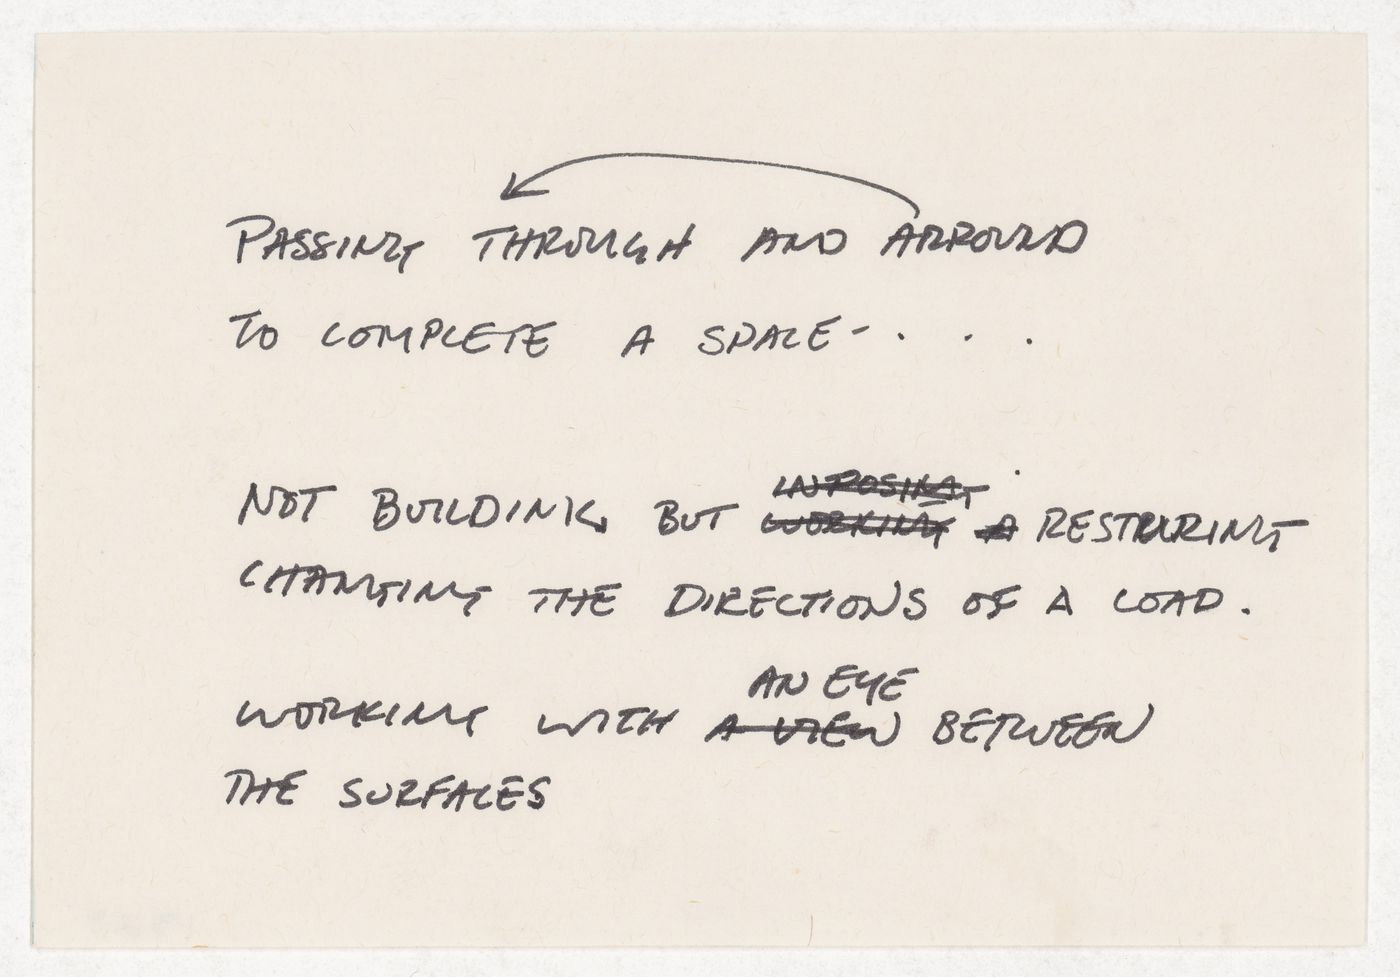 PASSING THROUGH AND ARROUND
TO COMPLETE A SPACE - . . .
NOT BUILDING BUT WORKING A
CHANGING THE DIRECTIONS OF A LOAD.
AN EYE
WORKING WITH A VIEW BETWEEN
THE SURFACES